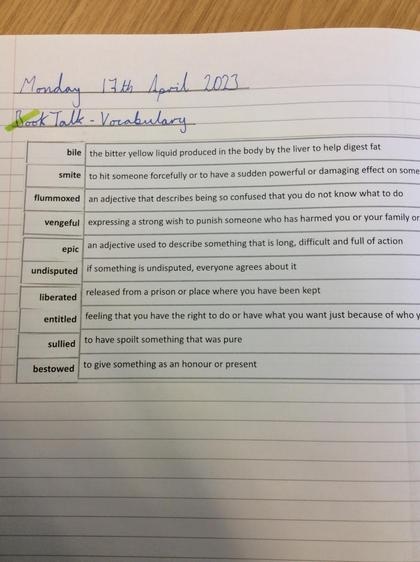 Monday 17th April 2023
Book Talk - Vocabulary
bile the bitter yellow liquid produced in the body by the liver to help digest fat
smite to hit someone forcefully or to have a sudden powerful or damaging effect on some
flummoxed an adjective that describes being so confused that you do not know what to do
vengeful expressing a strong wish to punish someone who has harmed you or your family or
epic an adjective used to describe something that is long, difficult and full of action
undisputed if something is undisputed, everyone agrees about it
liberated released from a prison or place where you have been kept
entitled feeling that you have the right to do or have what you want just because of who y
sullied to have spoilt something that was pure
bestowed to give something as an honour or present